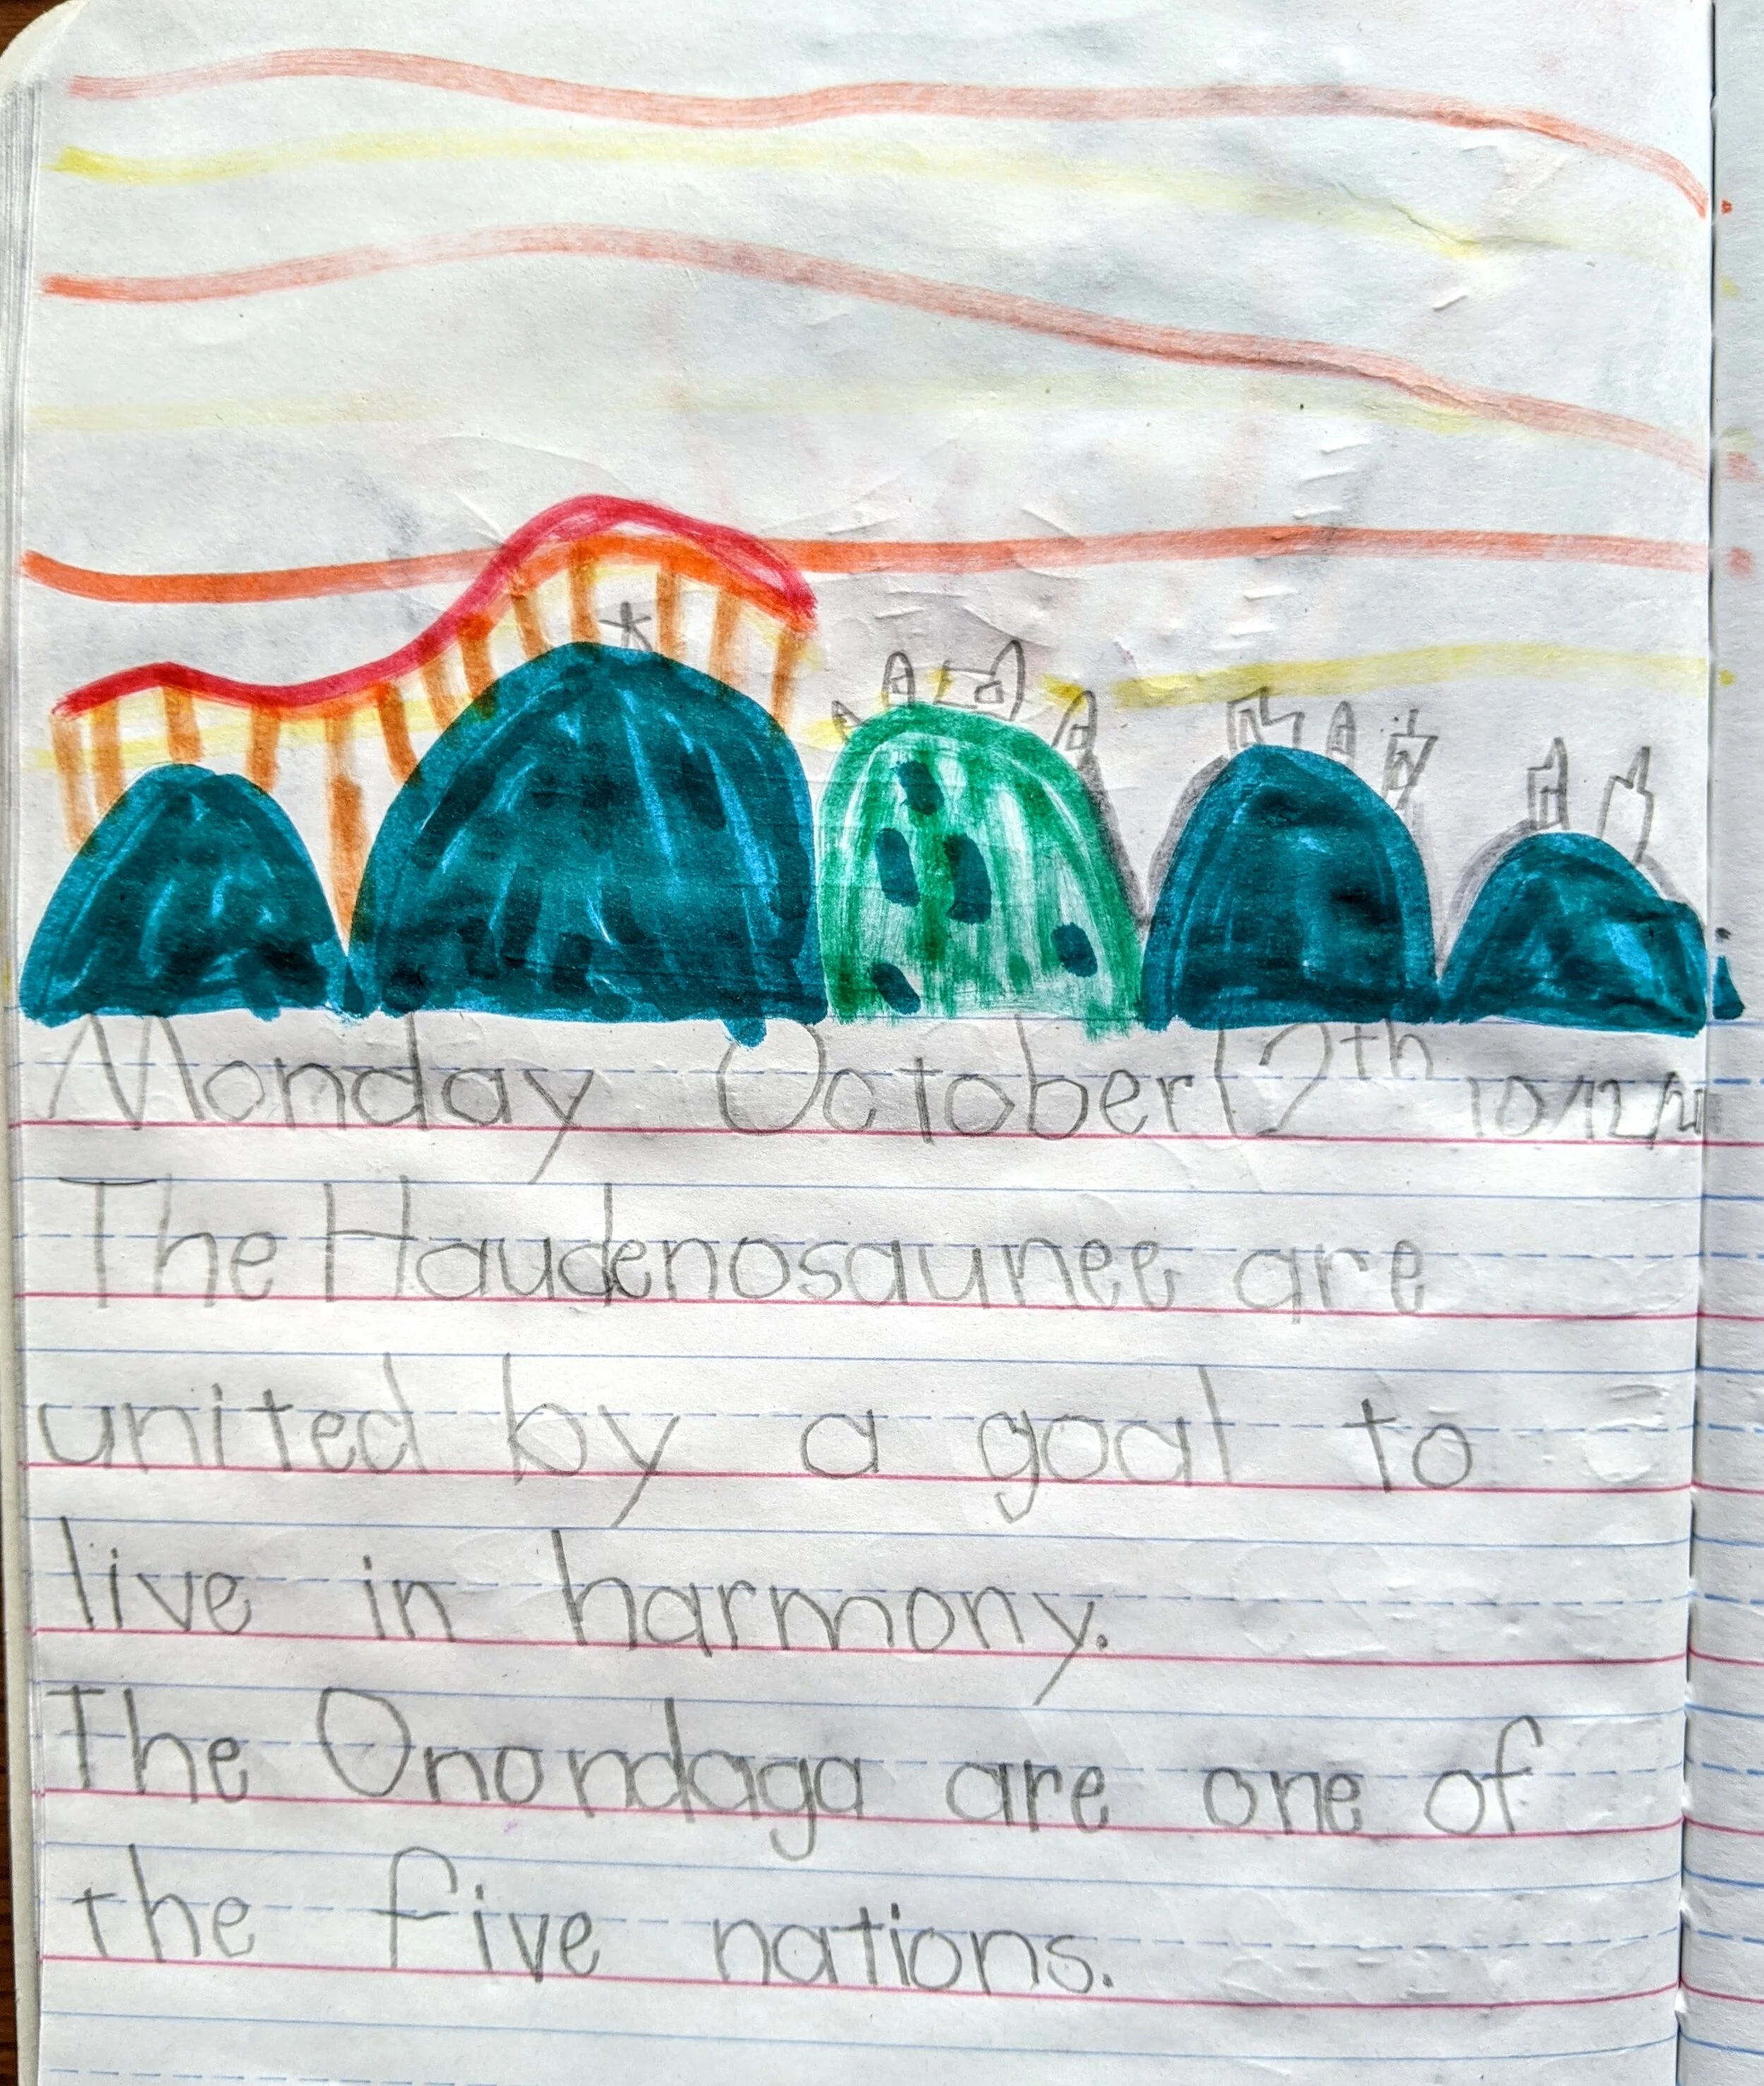 Monday October 12th 10/12/20
The Haudenosaunee are
united by a goal to
live in harmony.
The Onondaga are one of
the five nations.